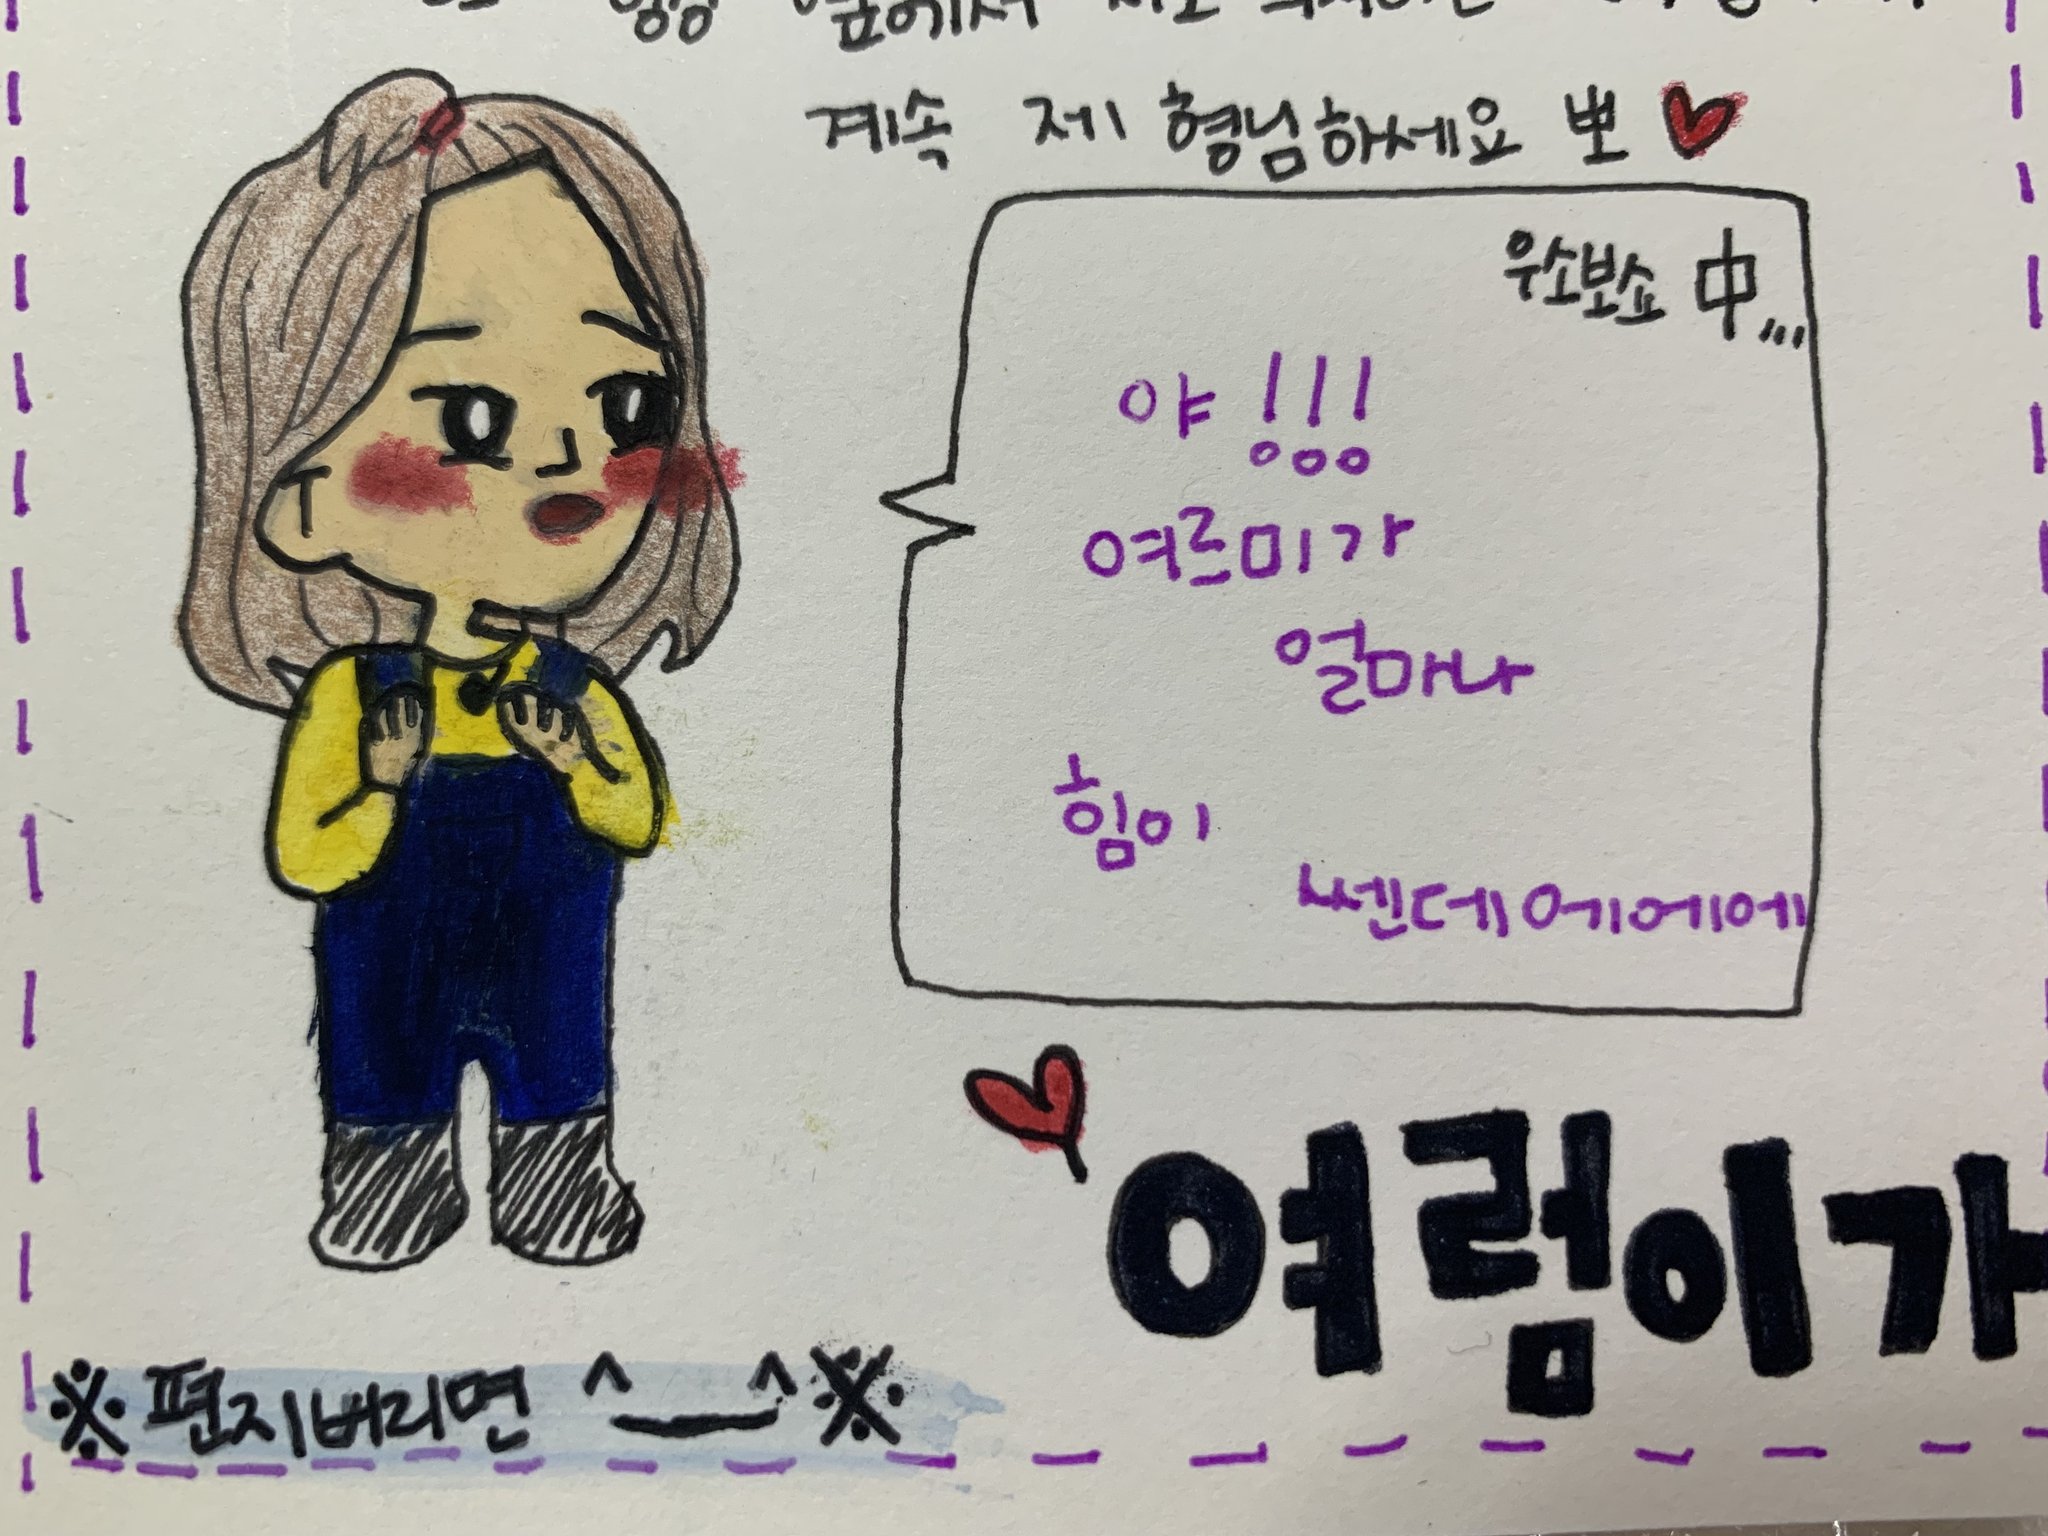 앞에서
계속 제 형님하세요 뽀
우소보쇼 中...
야!!!
여르미가
얼마나
힘이
쎈데에에에
여럼이가
※편지버리면 ^__^※